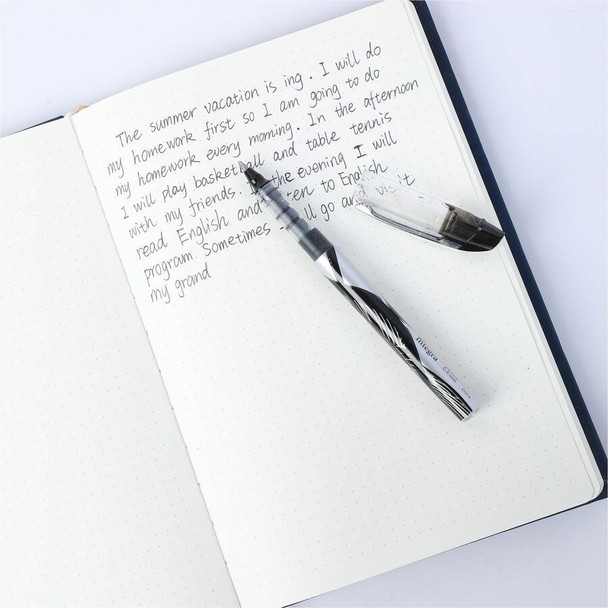 The summer vacation is ing. I will do
my homework first so I am going to do
my homework every morning. In the afternoon
I will play basketball and table tennis
with my friends. In the evening I will
read English and listen to English
program. Sometimes I will go and visit
my grand
integra